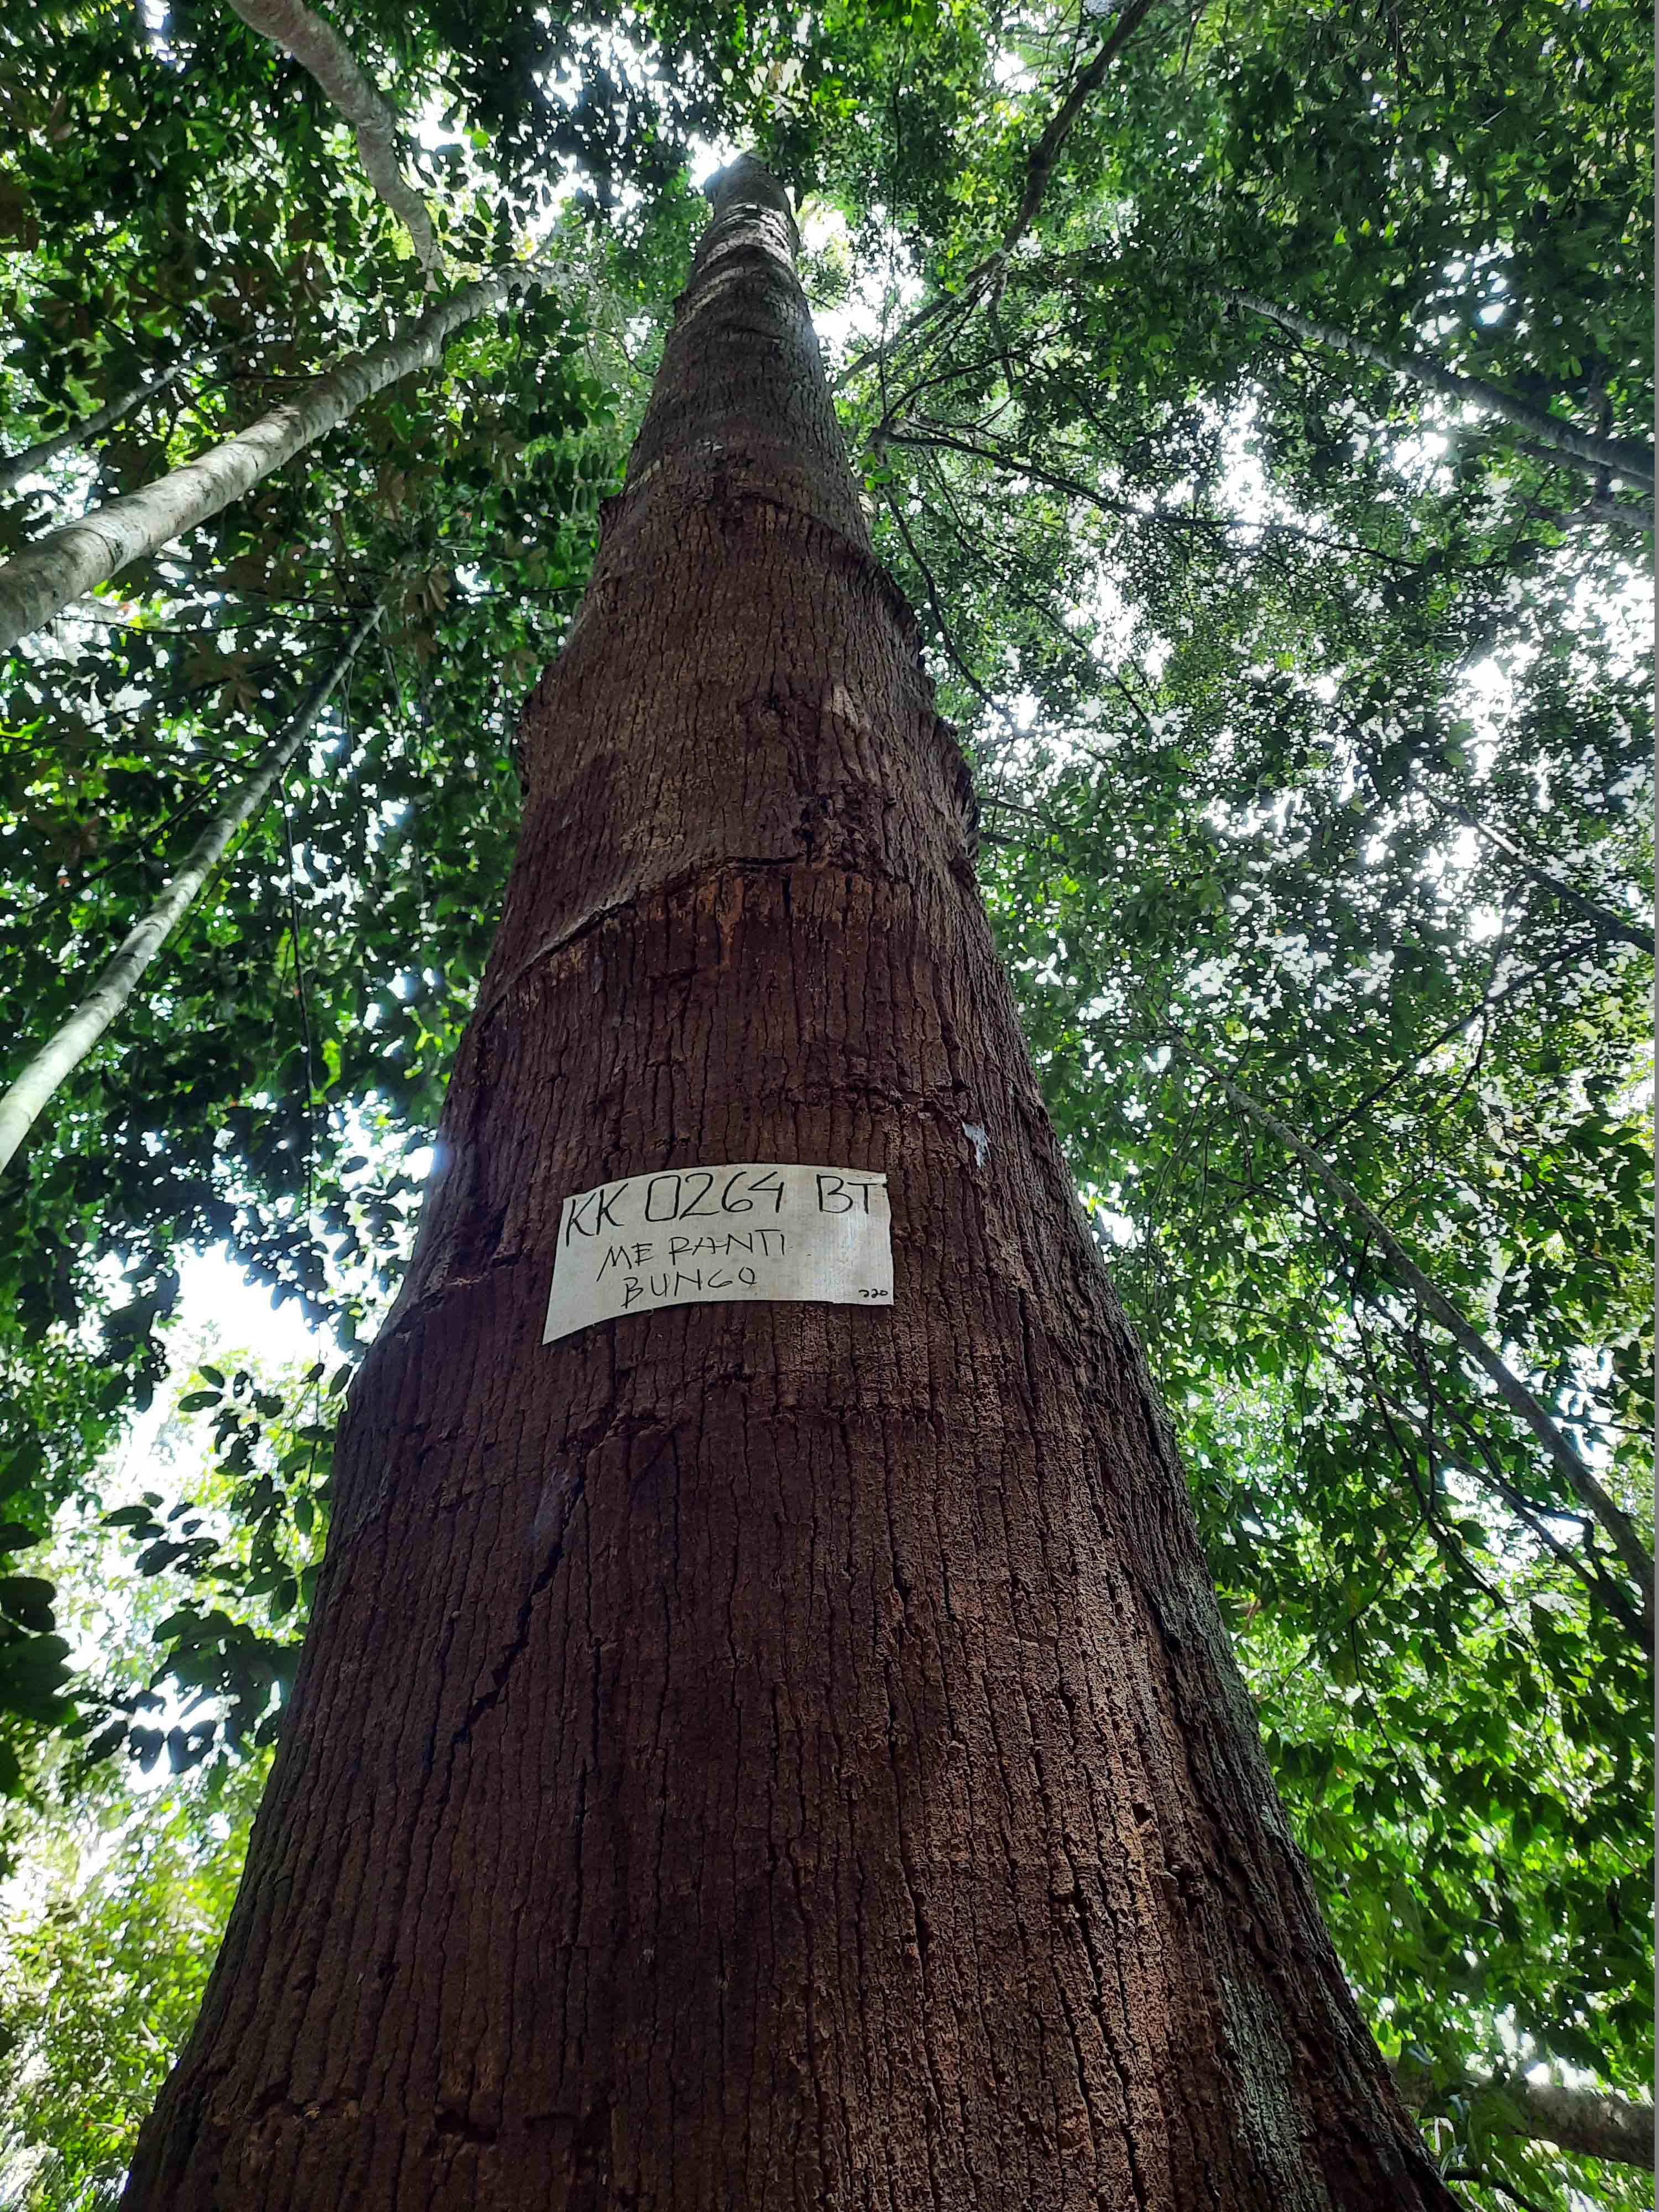 KK 0264 BT
MERANTI
BUNGO
220